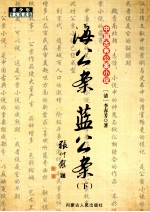 中国古典公案小说
海公案
蓝公案
（下）
［清］李春芳 著
内蒙古人民出版社